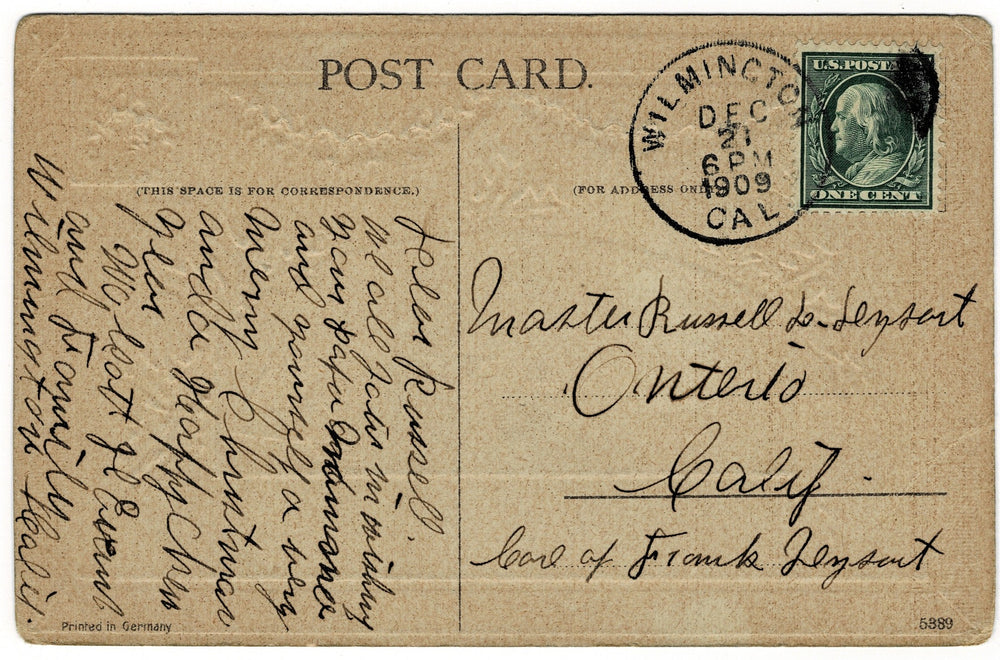 POST CARD.
(THIS SPACE IS FOR CORRESPONDENCE.)
(FOR ADDRESS ONLY.)
WILMINGTON
DEC
21
6 PM
1909
CAL
U.S. POSTAGE
ONE CENT
Dear Russell.
we all Join in wishing
your papa mama
and yourself a very
Merry Christmas
and a Happy New
Year
and Family
Wilmington Calif.
Master Russell L.
Onterio
Calif.
Care of Frank
Printed in Germany
5389